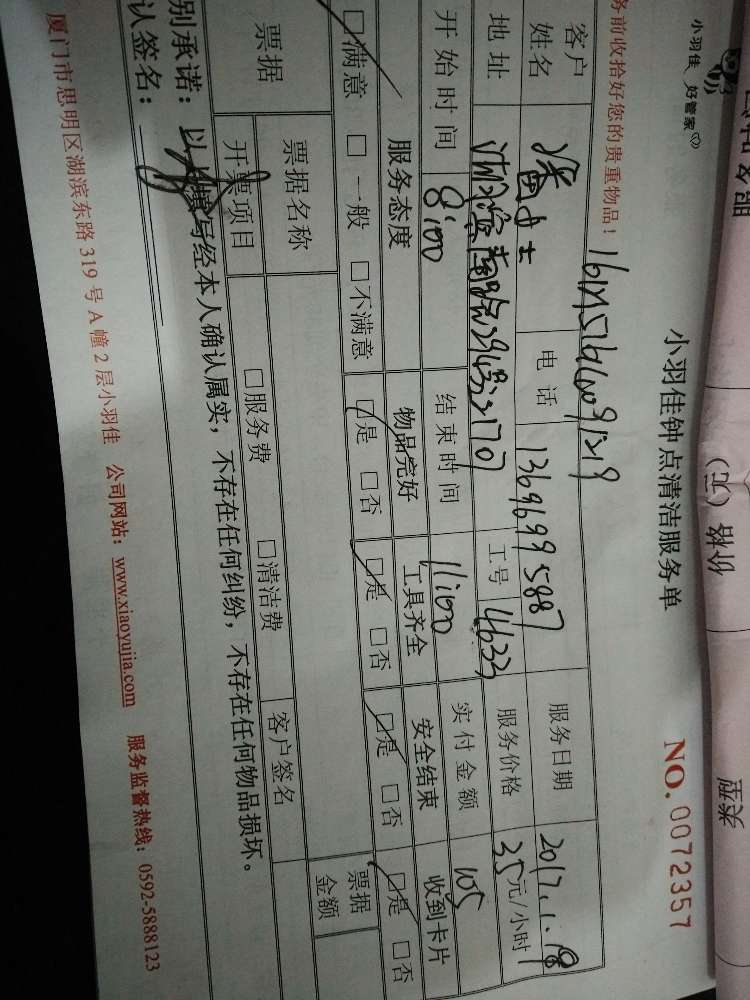 小羽佳 好管家
小羽佳钟点清洁服务单
NO. 0072357
务前收拾好您的贵重物品！
客户姓名 潘女士 电话 13696995887 服务日期 2017.1.18
地址 工号 4633 服务价格 35元/小时
开始时间 8:00 结束时间 11:00 实付金额 105
服务态度 物品完好 工具齐全 安全结束 收到卡片
□满意 □一般 □不满意 □是 □否 □是 □否 □是 □否 □是 □否
票据 票据名称 客户签名 票据金额
开票项目 □服务费 □清洁费
别承诺：以上填写经本人确认属实，不存在任何纠纷，不存在任何物品损坏。
认签名：
厦门市思明区湖滨东路319号A幢2层小羽佳 公司网站：www.xiaoyujia.com 服务监督热线：0592-5888123
价格（元）